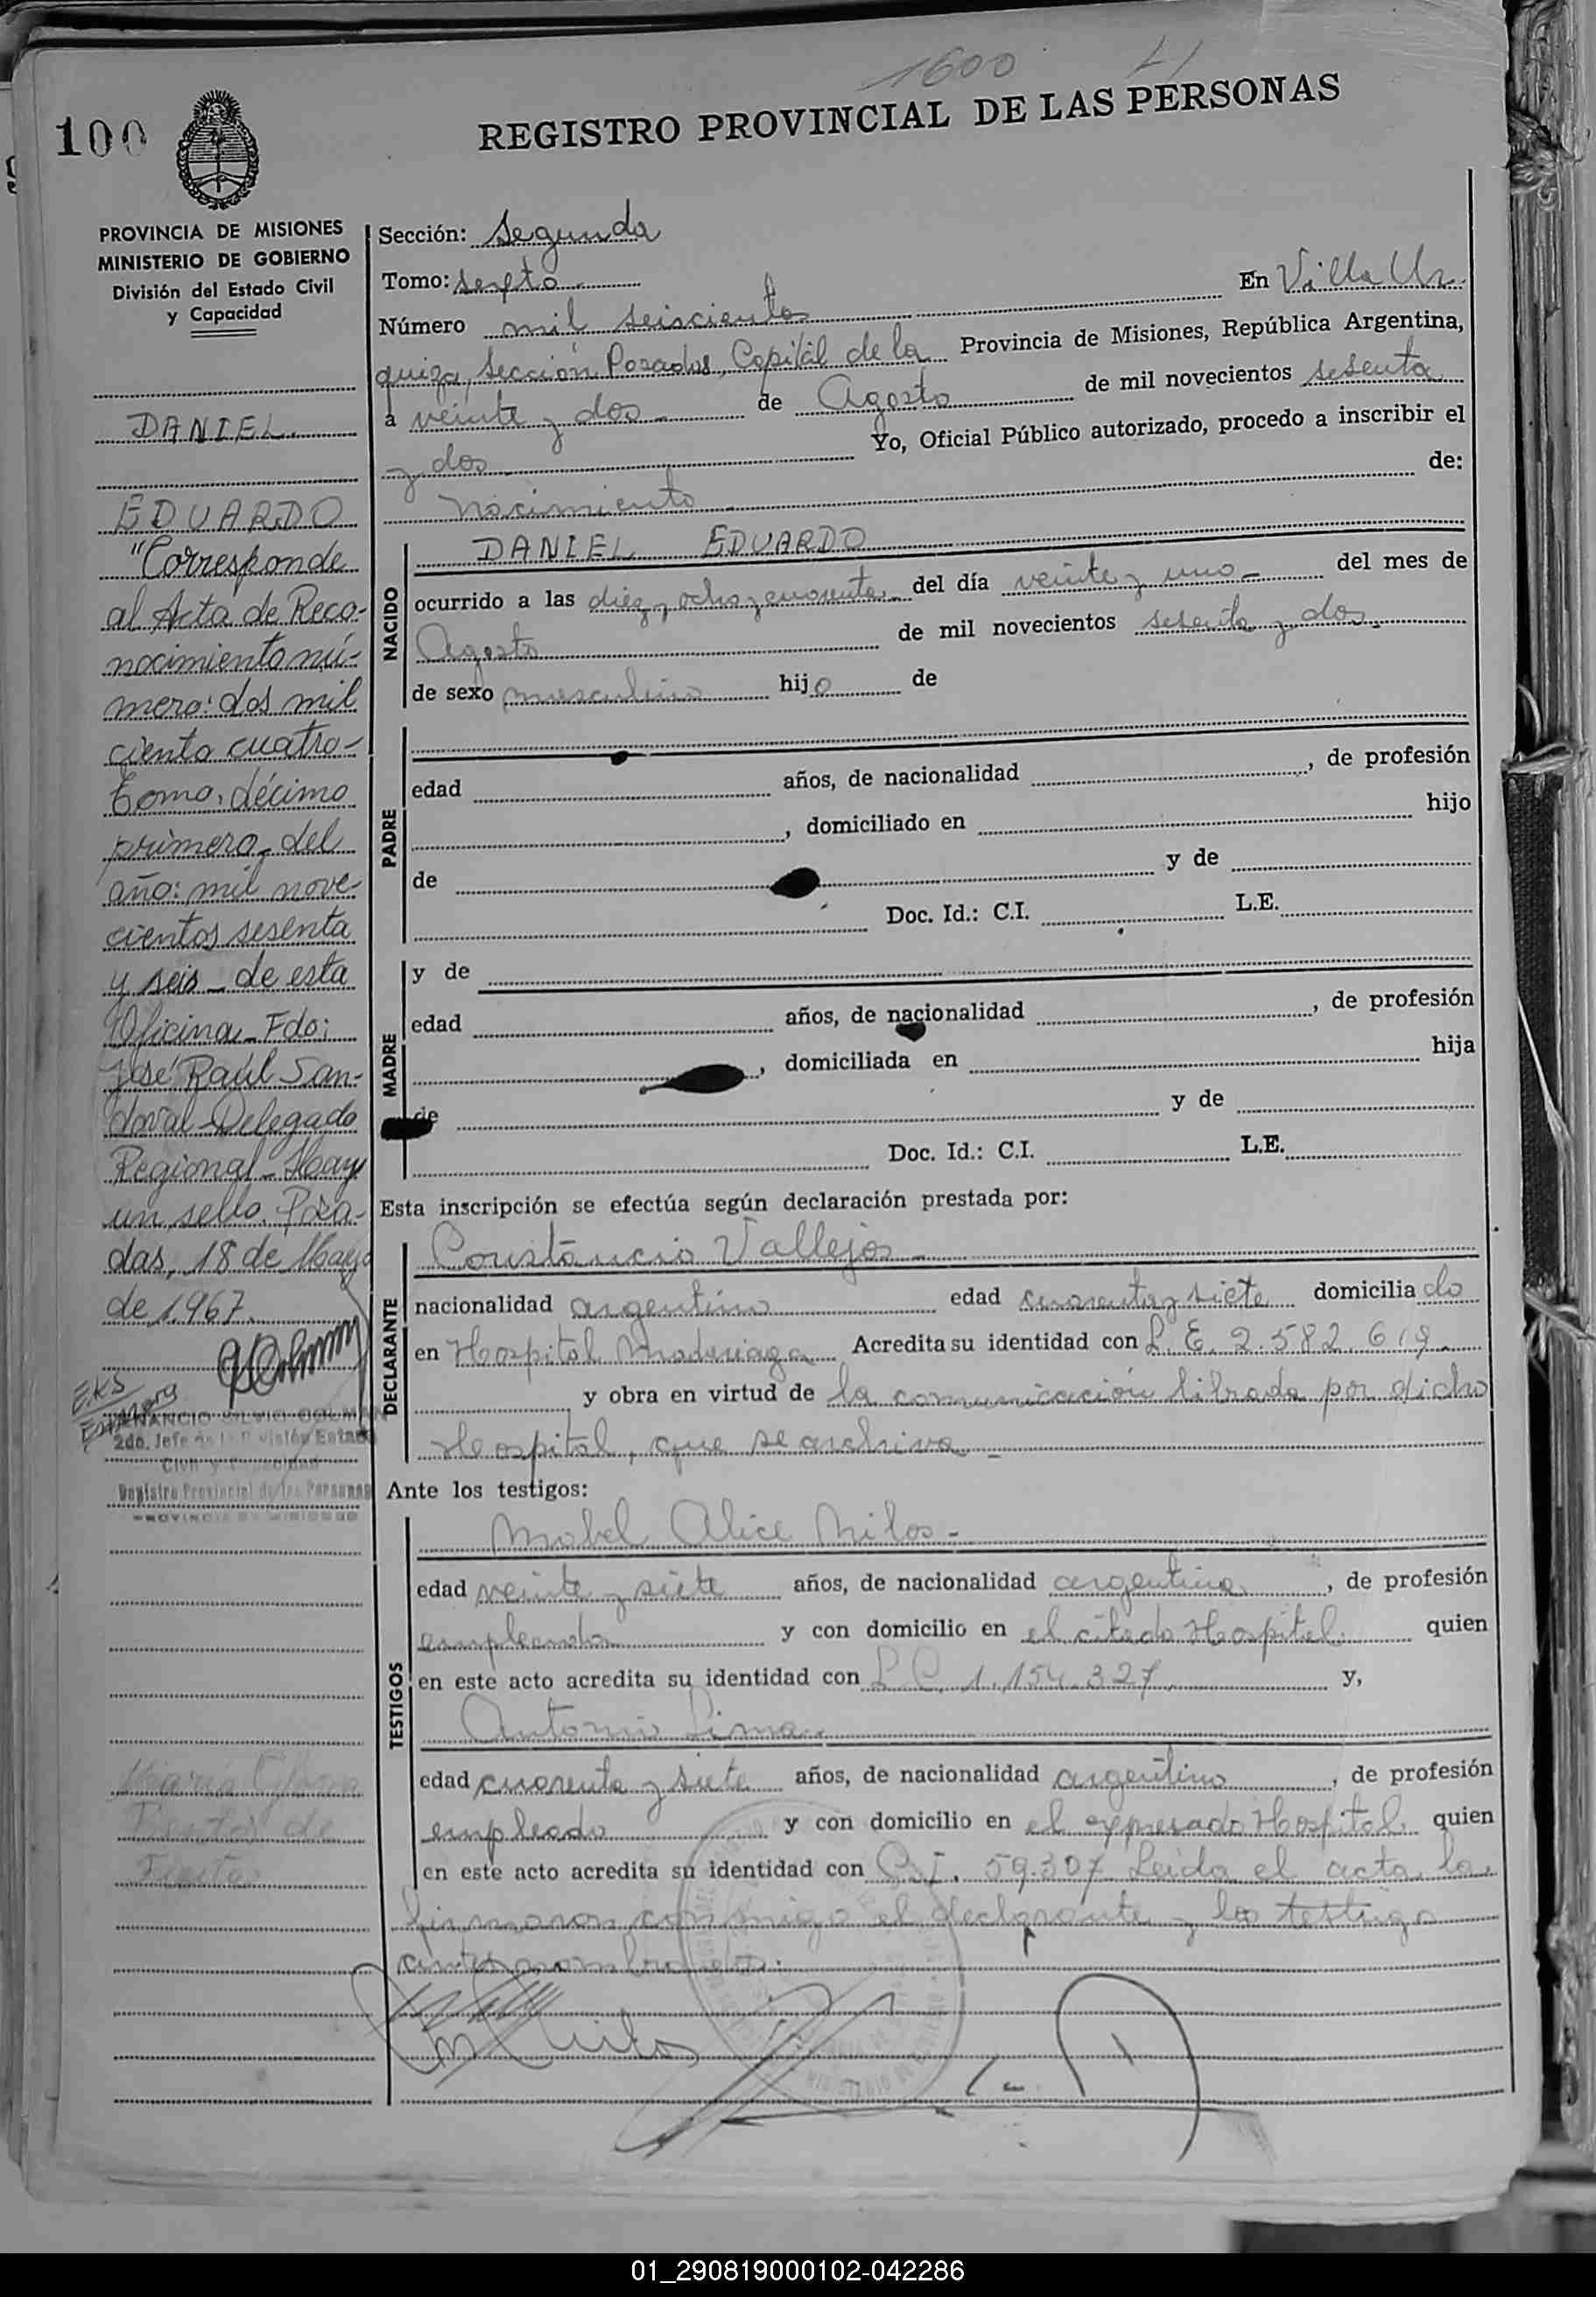 1600
100
REGISTRO PROVINCIAL DE LAS PERSONAS
PROVINCIA DE MISIONES
MINISTERIO DE GOBIERNO
División del Estado Civil
y Capacidad
DANIEL.
EDUARDO
"Corresponde
al Acta de Reco-
nocimiento nú-
mero: dos mil
ciento cuatro-
Tomo: décimo
primero. del
año: mil nove-
cientos sesenta
y seis - de esta
Oficina - Fdo:
José Raúl San-
doval - Delegado
Regional - Hay
un sello. Posa-
das, 18 de Mayo
de 1.967.
2do. Jefe de División Estado
Civil y Capacidad
Registro Provincial de las Personas
PROVINCIA DE MISIONES
Sección: Segunda
Tomo: sexto
Número mil seiscientos En Villa Ur
quiza, Sección Posadas, Capital de la Provincia de Misiones, República Argentina,
a veinte y dos - de Agosto de mil novecientos sesenta
y dos Yo, Oficial Público autorizado, procedo a inscribir el
nacimiento de:
NACIDO
DANIEL EDUARDO
ocurrido a las diez y ocho y cuarenta del día veinte y uno - del mes de
Agosto de mil novecientos sesenta y dos.
de sexo masculino hijo de
PADRE
edad años, de nacionalidad , de profesión
, domiciliado en hijo
de y de
Doc. Id.: C.I. L.E.
MADRE
y de
edad años, de nacionalidad , de profesión
, domiciliada en hija
de y de
Doc. Id.: C.I. L.E.
Esta inscripción se efectúa según declaración prestada por:
DECLARANTE
Constancio Vallejos -
nacionalidad argentino edad cuarenta y siete domiciliado
en Hospital Madariaga Acredita su identidad con L.E. 2.582.619.
y obra en virtud de la comunicación librada por dicho
Hospital, que se archiva -
Ante los testigos:
TESTIGOS
Mabel Alice Milos -
edad veinte y siete años, de nacionalidad argentina, de profesión
empleada y con domicilio en el citado Hospital. quien
en este acto acredita su identidad con L.C. 1.154.327 y,
Antonio Lima.
edad cuarenta y siete años, de nacionalidad argentino , de profesión
empleado y con domicilio en el expresado Hospital. quien
en este acto acredita su identidad con C.I. 59.307 Leida el acta, la
firmaron conmigo el declarante y los testigos
antes nombrados.
01_290819000102-042286